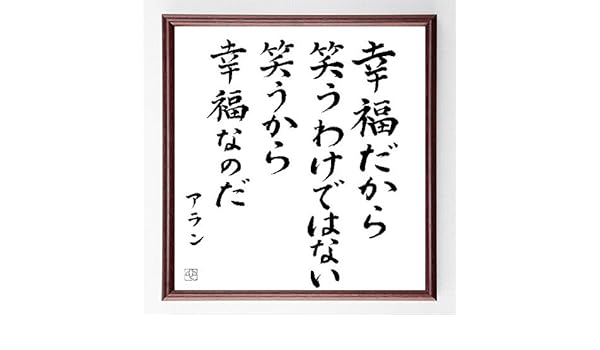 幸福だから
笑うわけではない
笑うから
幸福なのだ
アラン